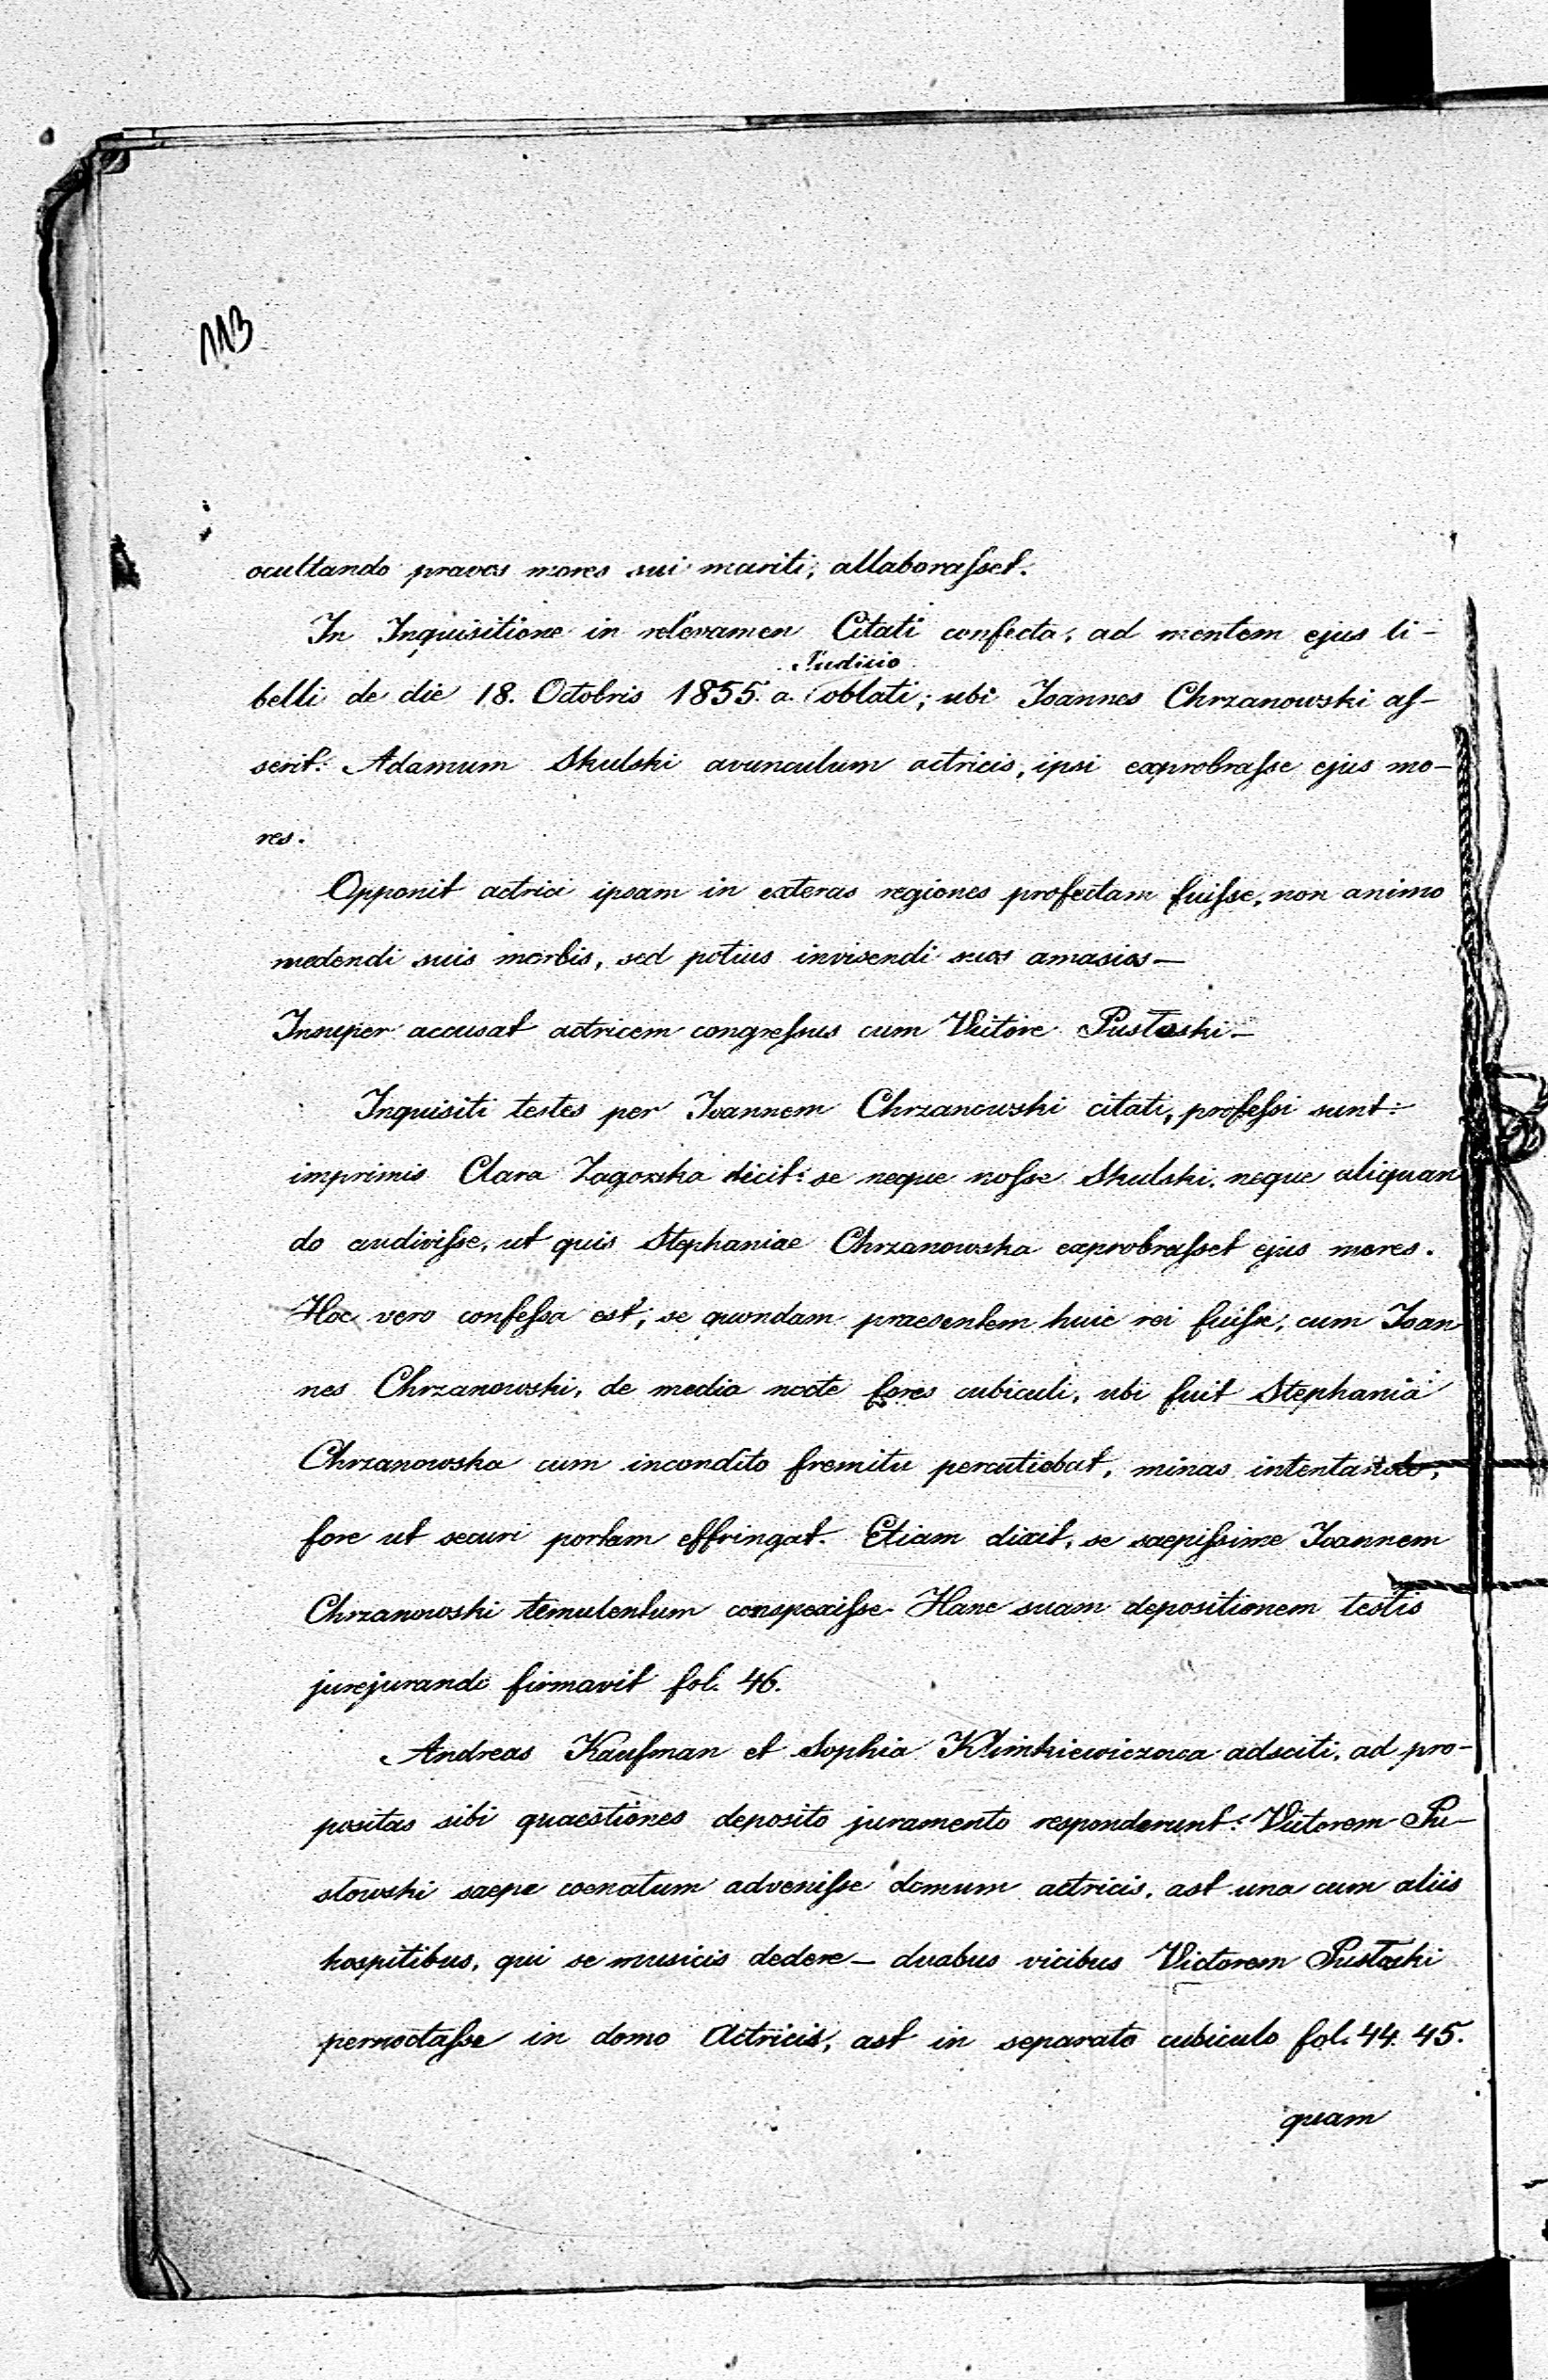 113
ocultando pravos mores sui mariti, allaborasset.
In Inquisitione in relevamen Citati confecta, ad mentem ejus li-
Judicio
belli de die 18. Octobris 1855. a. oblati; ubi Joannes Chrzanowski as-
serit: Adamum Skulski avunculum actricis, ipsi exprobrasse ejus mo-
res.
Opponit actrici ipsam in exteras regiones profectam fuisse, non animo
medendi suis morbis, sed potius invisendi suos amasios—
Insuper accusat actricem congressus cum Victore Pustoski—
Inquisiti testes per Joannem Chrzanowski citati, professi sunt:
imprimis Clara Zagorska dicit: se neque nosse Skulski, neque aliquan
do audivisse, ut quis Stephaniae Chrzanowska exprobrasset ejus mores.
Hoc vero confessa est, se quondam praesentem huic rei fuisse, cum Joan
nes Chrzanowski, de media nocte fores cubiculi, ubi fuit Stephania
Chrzanowska cum incondito fremitu percutiebat, minas intentando,
fore ut securi portam effringat. Etiam dixit, se saepissime Joannem
Chrzanowski temulentum conspexisse. Hanc suam depositionem testis
jurejurando firmavit fol. 46.
Andreas Kaufman et Sophia Klimkiewiczowa adsciti, ad pro-
positas sibi quaestiones deposito juramento responderunt: Victorem Pu-
stowski saepe coenatum advenisse domum actricis, ast una cum aliis
hospitibus, qui se musicis dedere— duabus vicibus Victorem Pustoski
pernoctasse in domo Actricis, ast in separato cubiculo fol. 44. 45.
quam